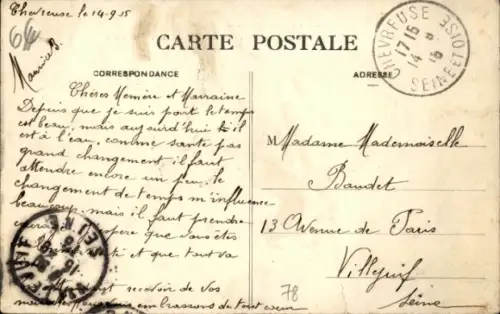 Chevreuse le 14-9-15
64
Maurice B.
CARTE POSTALE
CORRESPONDANCE
ADRESSE
CHEVREUSE
17 15
14 9
15
SEINE ET OISE
Chères Mémère et Marraine
Depuis que je suis parti le temps
est beau, mais aujourd'hui il
est à l'eau, comme santé pas
grand changement il faut
attendre encore un peu, le
changement de temps m'influence
beaucoup, mais il faut prendre
père que vous êtes
té et que tout va
recevoir de vos
embrassons de tout cœur
Madame Mademoiselle
Baudet
13 Avenue de Paris
Villejuif
Seine
VILLEJUIF
SEINE
78